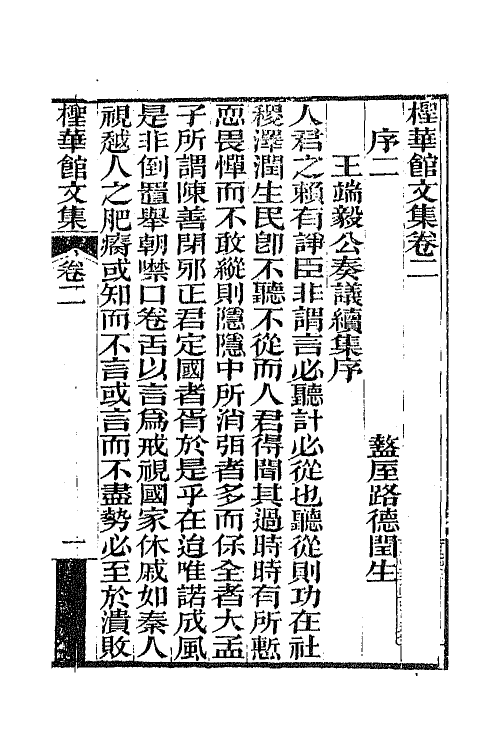 檉華館文集卷二
序二 盩厔路德閏生
王端毅公奏議續集序
人君之賴有諍臣非謂言必聽計必從也聽從則功在社
稷澤潤生民卽不聽不從而人君得聞其過時時有所慙
恧畏憚而不敢縱則隱隱中所消弭者多而保全者大孟
子所謂陳善閉邪正君定國者胥於是乎在迨唯諾成風
是非倒置舉朝噤口卷舌以言爲戒視國家休戚如秦人
視越人之肥瘠或知而不言或言而不盡勢必至於潰敗
檉華館文集 卷二 一